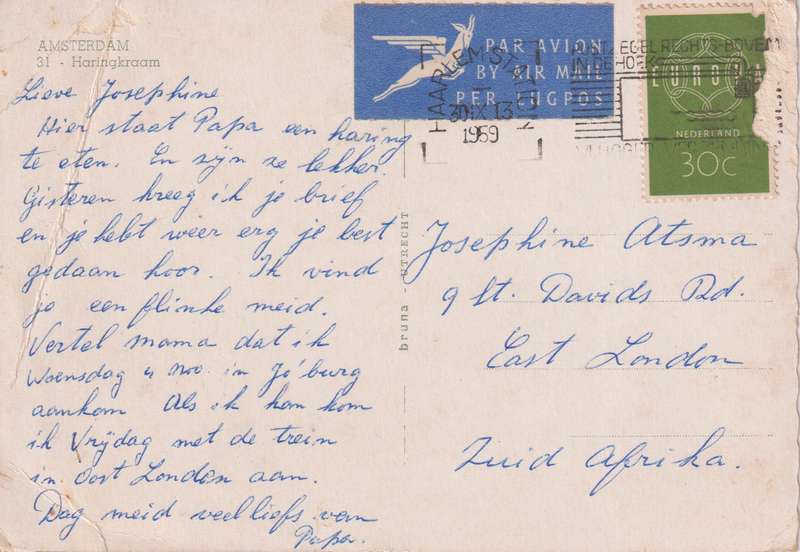 AMSTERDAM
31 - Haringkraam
Lieve Josephine
Hier staat Papa een haring
te eten. En zijn ze lekker.
Gisteren kreeg ik je brief
en je hebt weer erg je best
gedaan hoor. Ik vind
je een flinke meid.
Vertel mama dat ik
Woensdag 4 Nov. in Jo'burg
aankom Als ik kan kom
ik Vrijdag met de trein
in Oost London aan.
Dag meid veel liefs van
Papa.
bruna - UTRECHT
PAR AVION
BY AIR MAIL
PER LUGPOS
HAARLEM STATION
1959
POSTZEGEL RECHTS-BOVEN
IN DE HOEK
EUROPA
NEDERLAND
30c
Josephine Atsma
9 St. Davids Rd.
East London
Zuid Afrika.